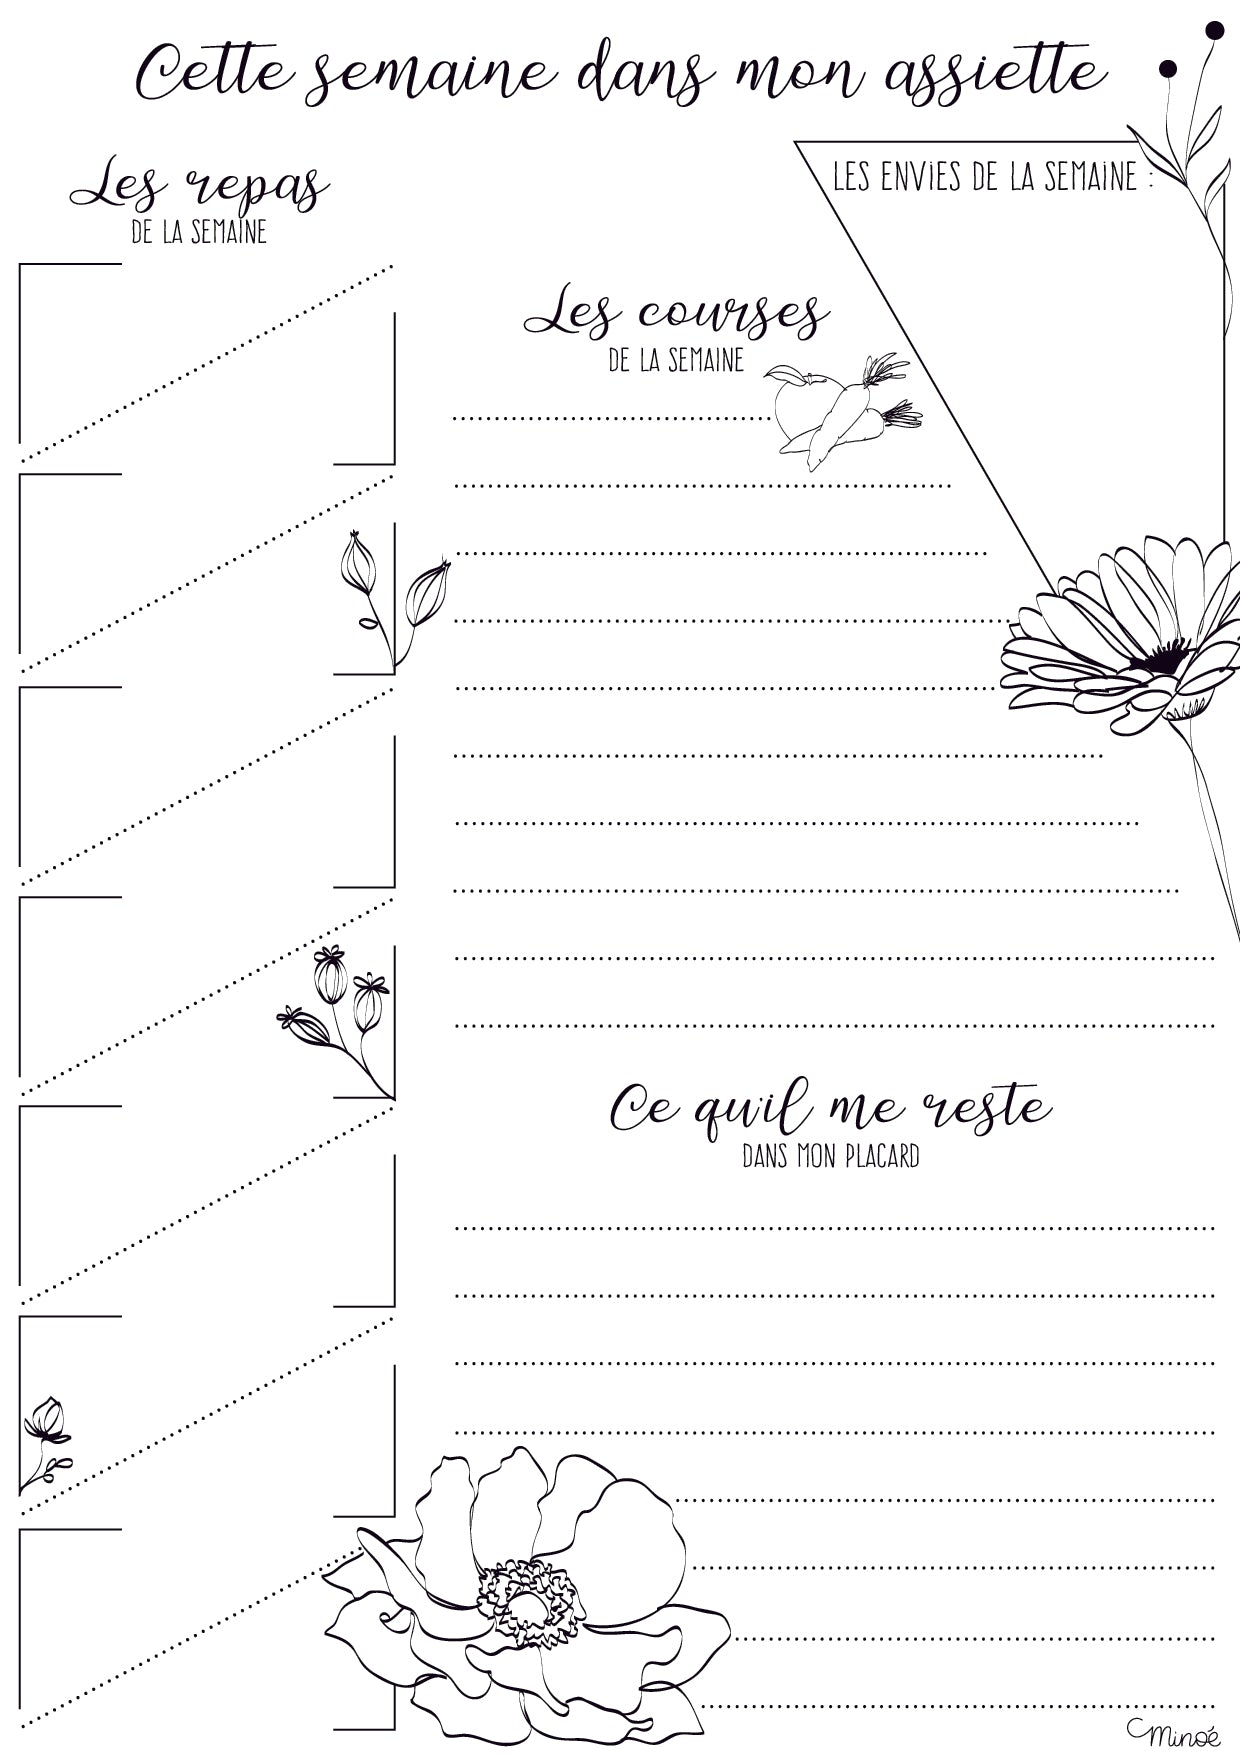 Cette semaine dans mon assiette
Les repas
DE LA SEMAINE
LES ENVIES DE LA SEMAINE :
Les courses
DE LA SEMAINE
Ce qu'il me reste
DANS MON PLACARD
Minoé